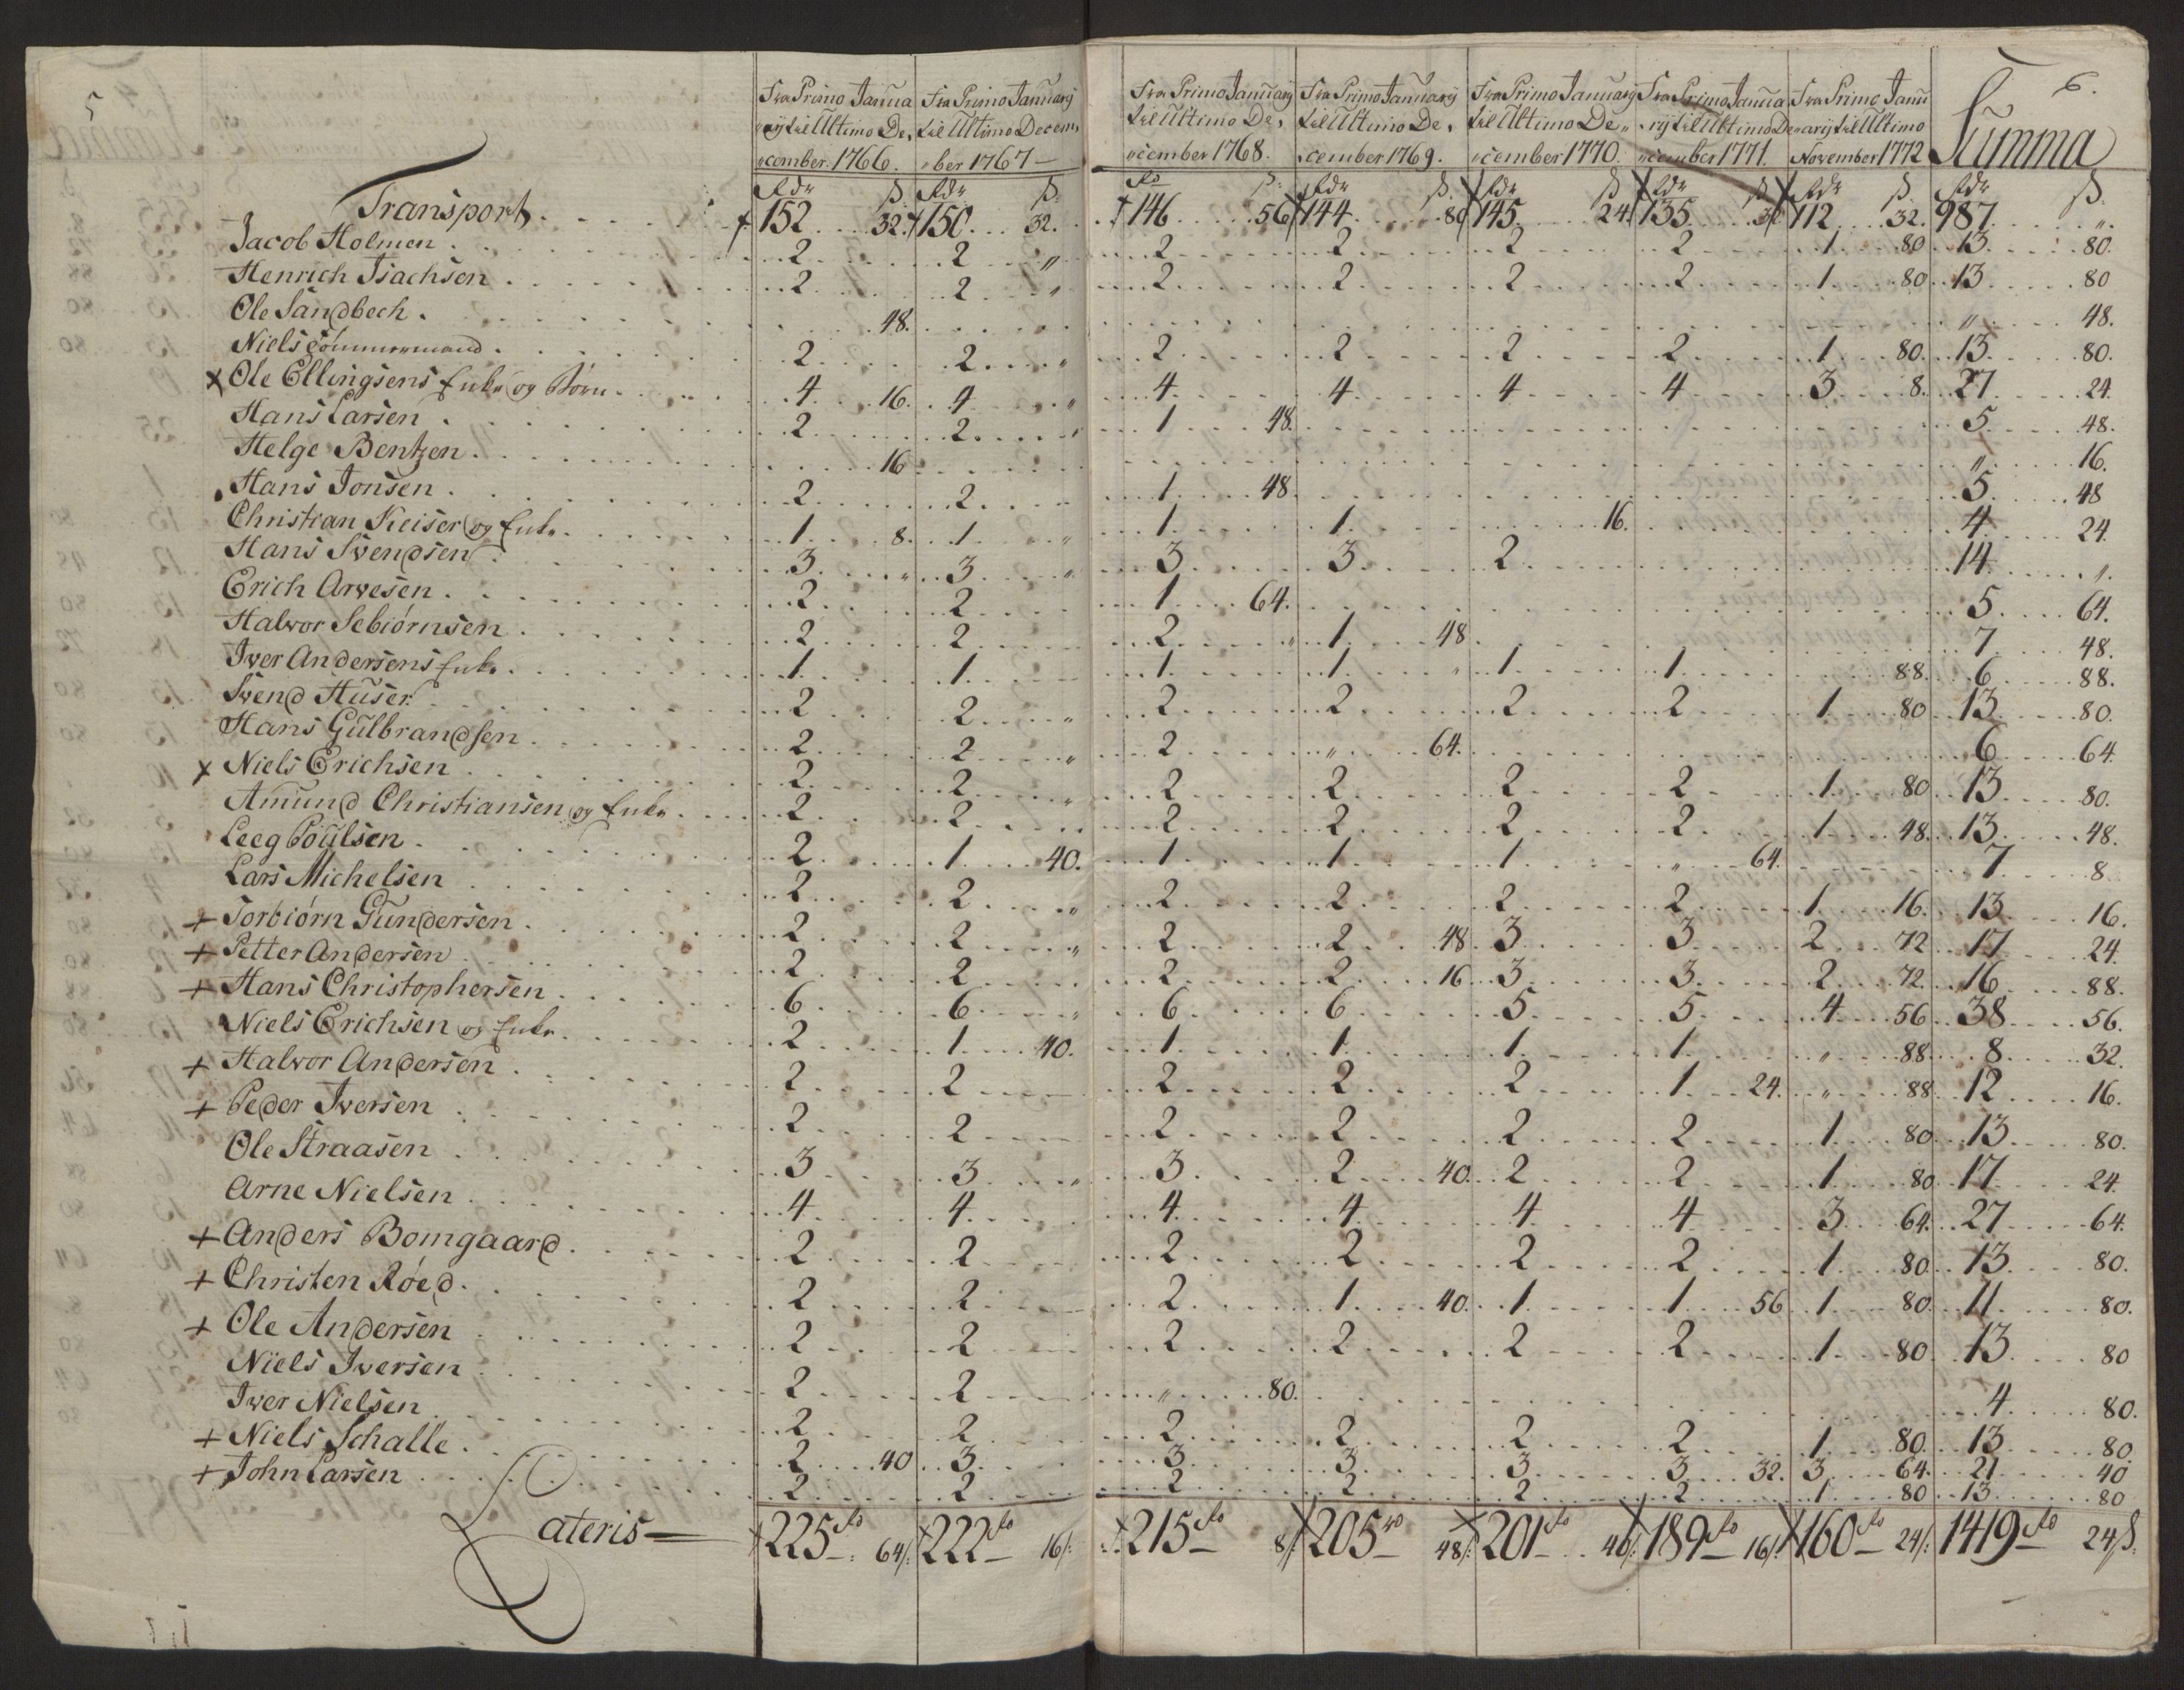 5
6.
Fra Primo Janua Fra Primo Januarij Fra Primo Januarij Fra Primo Januarij Fra Primo Januarij Fra Primo Janua Fra Primo Janu Summa
rij til Ultimo De, til Ultimo Decem, til Ultimo De, til Ultimo De, til Ultimo De„ rij til Ultimo De„ arij til Ultimo
„cember 1766. „ber 1767 — „cember 1768. „cember 1769. „cember 1770. „cember 1771. November 1772
Rdr ß. Rdr ß. Rd ß. Rdr ß. Rdr ß Rdr ß Rdr ß. Rdr ß.
Transport . 152 32. 150 32. 146 56 144 80 145 24 135 112 32. 987 „
Jacob Holmen . 2 2 „ 2 2 2 2 1 80 13 80.
Henrich Isachsen . 2 2 „ 2 2 2 2 1 80 13 80
Ole Sandbech . 48. „ 48.
Niels 2 2 „ 2 2 2 2 1 80. 13 80.
x Ole Ellingsens Enke og Börn . 4 16. 4 „ 4 4 4 4 3 8. 27 24.
Hans Larsen . 2 2 1 48. 5 48.
Helge Bentzen . 16 „ 16.
Hans Jonsen . 2 2 1 48. 5 48
Christian Keiser og Enke . 1 8. 1 „ 1 1 16. 4 24.
Hans Svendsen . 3 „ 3 „ 3 3 2 14 „
Erich Arvesen . 2 2 1 64. 5 64.
Halvor Sebiörnsen . 2 2 2 „ 1 48 7 48.
Iver Andersens Enke . 1 1 1 1 „ 1 1 88. 6 88.
Svend Huser 2 2 „ 2 2 2 2 1 80 13 80.
Hans Gulbrandsen . 2 2 „ 2 „ 64. 6 64.
x Niels Erichsen . 2 2 „ 2 2 2 2 1 80 13 80.
Amund Christiansen og Enke . 2 2 2 2 2 2 1 48. 13 48.
Leeg Poulsen . 2 1 40. 1 1 1 „ 64. 7 8
Lars Michelsen . 2 2 „ 2 2 2 2 1 16. 13 16.
+ Torbiörn Gundersen . 2 2 „ 2 2 48 3 3 2 72 17 24.
+ Petter Andersen . 2 2 2 2 16 3 3 2 72 16 88.
+ Hans Christophersen . 6 6 „ 6 6 5 5 4 56 38 56.
Niels Erichsen og Enke . 2 1 40. 1 1 1 1 „ 88 8 32.
+ Halvor Andersen . 2 2 2 2 2 1 24. „ 88 12 16.
+ Peder Iversen . 2 2 2 2 2 2 1 80 13 80.
Ole Straasen . 3 3 „ 3 2 40. 2 2 1 80 17 24
Arne Nielsen . 4 4 4 4 4 4 3 64. 27 64.
+ Anders Bomgaard . 2 2 2 2 2 2 1 80 13 80.
+ Christen Röed . 2 2 2 1 40. 1 1 56 1 80 11 80.
+ Ole Andersen 2 2 2 2 2 2 1 80 13 80
Niels Iversen 2 2 „ 80. 4 80.
Iver Nielsen . 2 2 2 2 2 2 1 80. 13 80.
+ Niels Schalle . 2 40 3 3 3 3 3 32. 3 64. 21 40
+ John Larsen . 2 2 2 2 2 2 1 80 13 80
Lateris — 225 Rd 64/: 222 Rd 16/: 215 Rd 8/: 205 Rd 48/: 201 Rd 189 Rd 16/: 160 Rd 24/: 1419 Rd 24 ß.